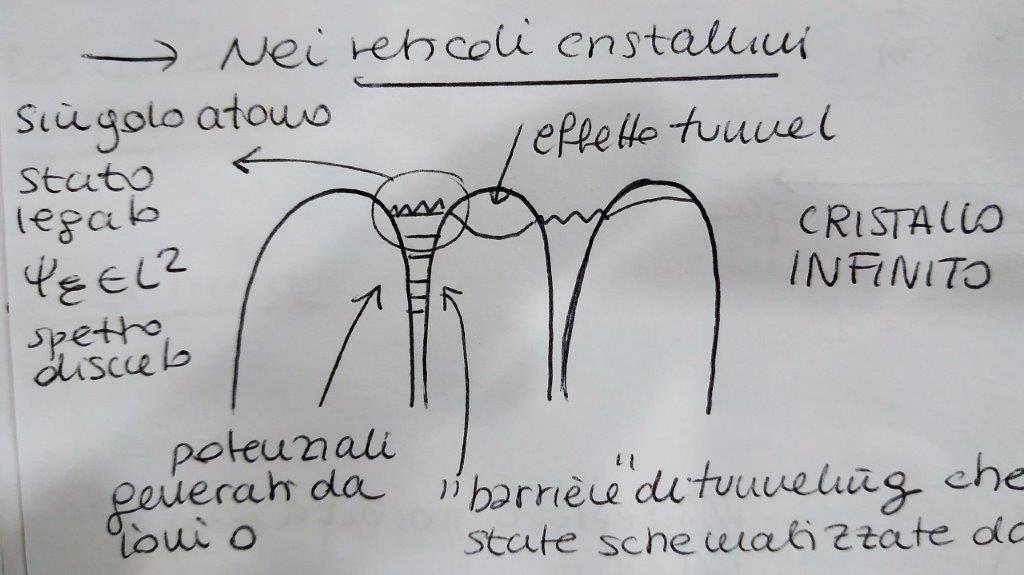 → Nei reticoli cristallini
singolo atomo
effetto tunnel
stato
legato
ΨE ∈ L²
spettro
discreto
CRISTALLO
INFINITO
potenziali
generati da
ioni o
"barriere" di tunneling che
state schematizzate da